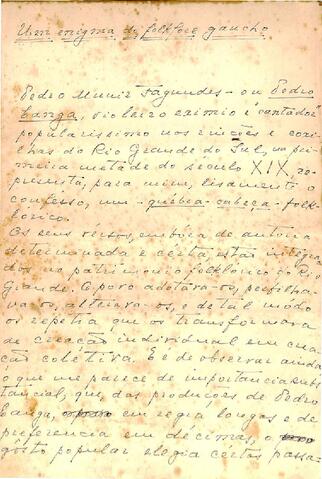 Um enigma do folklore gaucho
Pedro Muniz Fagundes - ou Pedro
Canga, violeiro eximio e "cantador"
popularissimo nos rincões e coxi-
lhas do Rio Grande do Sul, na pri-
meira metade do século XIX, re-
presenta, para mim, lisamente o
confesso, um quebra-cabeça folk-
lorico.
Os seus versos, embóra de autoria
determinada e certa, estão integra-
dos no patrimonio folklorico do Rio
Grande. O povo adotava-os, perfilha-
va-os, alterava-os, e de tal módo
os repetia que os transformava
de creação individual em crea-
ção coletiva. E é de observar ainda
o que me parece de importancia subs-
tancial, que, das produções de Pedro
Canga, em regra longas e de
preferencia em décimas, o
gosto popular elegia certas passa-